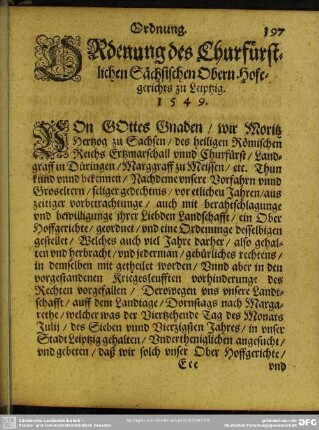 Ordnung. 197
ORdenung des Churfürst-
lichen Sächsischen Obern Hofe-
gerichts zu Leiptzig.
1549.
VOn GOttes Gnaden / wir Moritz
Hertzog zu Sachsen / des heiligen Römischen
Reichs Ertzmarschall vnnd Churfürst / Land-
graff in Düringen / Marggraff zu Meissen / etc. Thun
kund vnnd bekennen / Nachdeme vnsere Vorfahrn vnnd
Groseltern / seliger gedechtnis / vor etlichen Jahren / aus
zeitiger vorbetrachtunge / auch mit berahtschlagunge
vnd bewilligunge ihrer Liebden Landschafft / ein Ober
Hoffgericht / geordnet / vnd eine Ordenunge desselbigen
gestellet / Welches auch viel Jahre darher / also gehal-
ten vnd herbracht / vnd jederman / gebürliches rechtens /
in demselben mit getheilet worden / Vnnd aber in den
vorgestandenen Kriegesleufften vorhinderunge des
Rechten vorgefallen / Derowegen vns vnsere Land-
schafft / auff dem Landtage / Dornstags nach Marga-
rethe / welcher was der Viertzehende Tag des Monats
Julij / des Sieben vnnd Viertzigsten Jahres / in vnser
Stadt Leiptzig gehalten / Vndertheniglichen angesucht /
vnd gebeten / daß wir solch vnser Ober Hoffgerichte /
Eee vnd